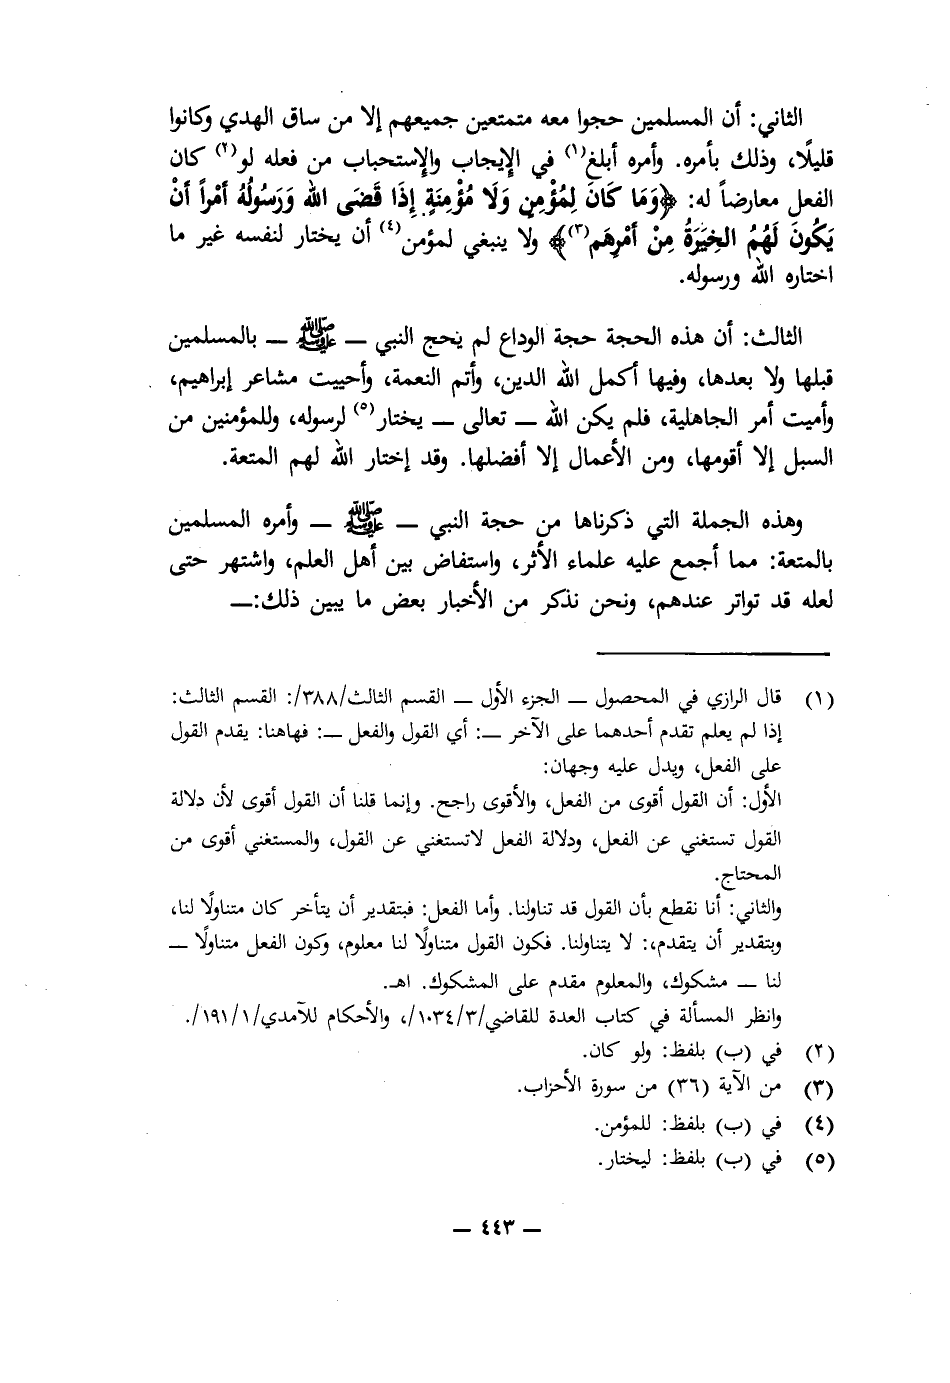 الثاني: أن المسلمين حجوا معه متمتعين جميعهم إلا من ساق الهدي وكانوا
قليلًا، وذلك بأمره. وأمره أبلغ(١) في الإيجاب والإستحباب من فعله لو(٢) كان
الفعل معارضاً له: ﴿وَمَا كَانَ لِمُؤْمِنٍ وَلَا مُؤْمِنَةٍ إِذَا قَضَى الله وَرَسُولُهُ أَمْراً أَنْ
يَكُونَ لَهُمُ الخِيَرَةُ مِنْ أَمْرِهَم(٣)﴾ ولا ينبغي لمؤمن(٤) أن يختار لنفسه غير ما
اختاره الله ورسوله.
الثالث: أن هذه الحجة حجة الوداع لم يحج النبي — ﷺ — بالمسلمين
قبلها ولا بعدها، وفيها أكمل الله الدين، وأتم النعمة، وأحييت مشاعر إبراهيم،
وأميت أمر الجاهلية، فلم يكن الله — تعالى — يختار(٥) لرسوله، وللمؤمنين من
السبل إلا أقومها، ومن الأعمال إلا أفضلها. وقد إختار الله لهم المتعة.
وهذه الجملة التي ذكرناها من حجة النبي — ﷺ — وأمره المسلمين
بالمتعة: مما أجمع عليه علماء الأثر، واستفاض بين أهل العلم، واشتهر حتى
لعله قد تواتر عندهم، ونحن نذكر من الأخبار بعض ما يبين ذلك:—
(١) قال الرازي في المحصول — الجزء الأول — القسم الثالث/٣٨٨/: القسم الثالث:
إذا لم يعلم تقدم أحدهما على الآخر —: أي القول والفعل —: فهاهنا: يقدم القول
على الفعل، ويدل عليه وجهان:
الأول: أن القول أقوى من الفعل، والأقوى راجح. وإنما قلنا أن القول أقوى لأن دلالة
القول تستغني عن الفعل، ودلالة الفعل لاتستغني عن القول، والمستغني أقوى من
المحتاج.
والثاني: أنا نقطع بأن القول قد تناولنا. وأما الفعل: فبتقدير أن يتأخر كان متناولًا لنا،
وبتقدير أن يتقدم،: لا يتناولنا. فكون القول متناولًا لنا معلوم، وكون الفعل متناولًا —
لنا — مشكوك، والمعلوم مقدم على المشكوك. اهـ.
وانظر المسألة في كتاب العدة للقاضي/١٠٣٤/٣/، والأحكام للآمدي/١٩١/١/.
(٢) في (ب) بلفظ: ولو كان.
(٣) من الآية (٣٦) من سورة الأحزاب.
(٤) في (ب) بلفظ: للمؤمن.
(٥) في (ب) بلفظ: ليختار.
— ٤٤٣ —